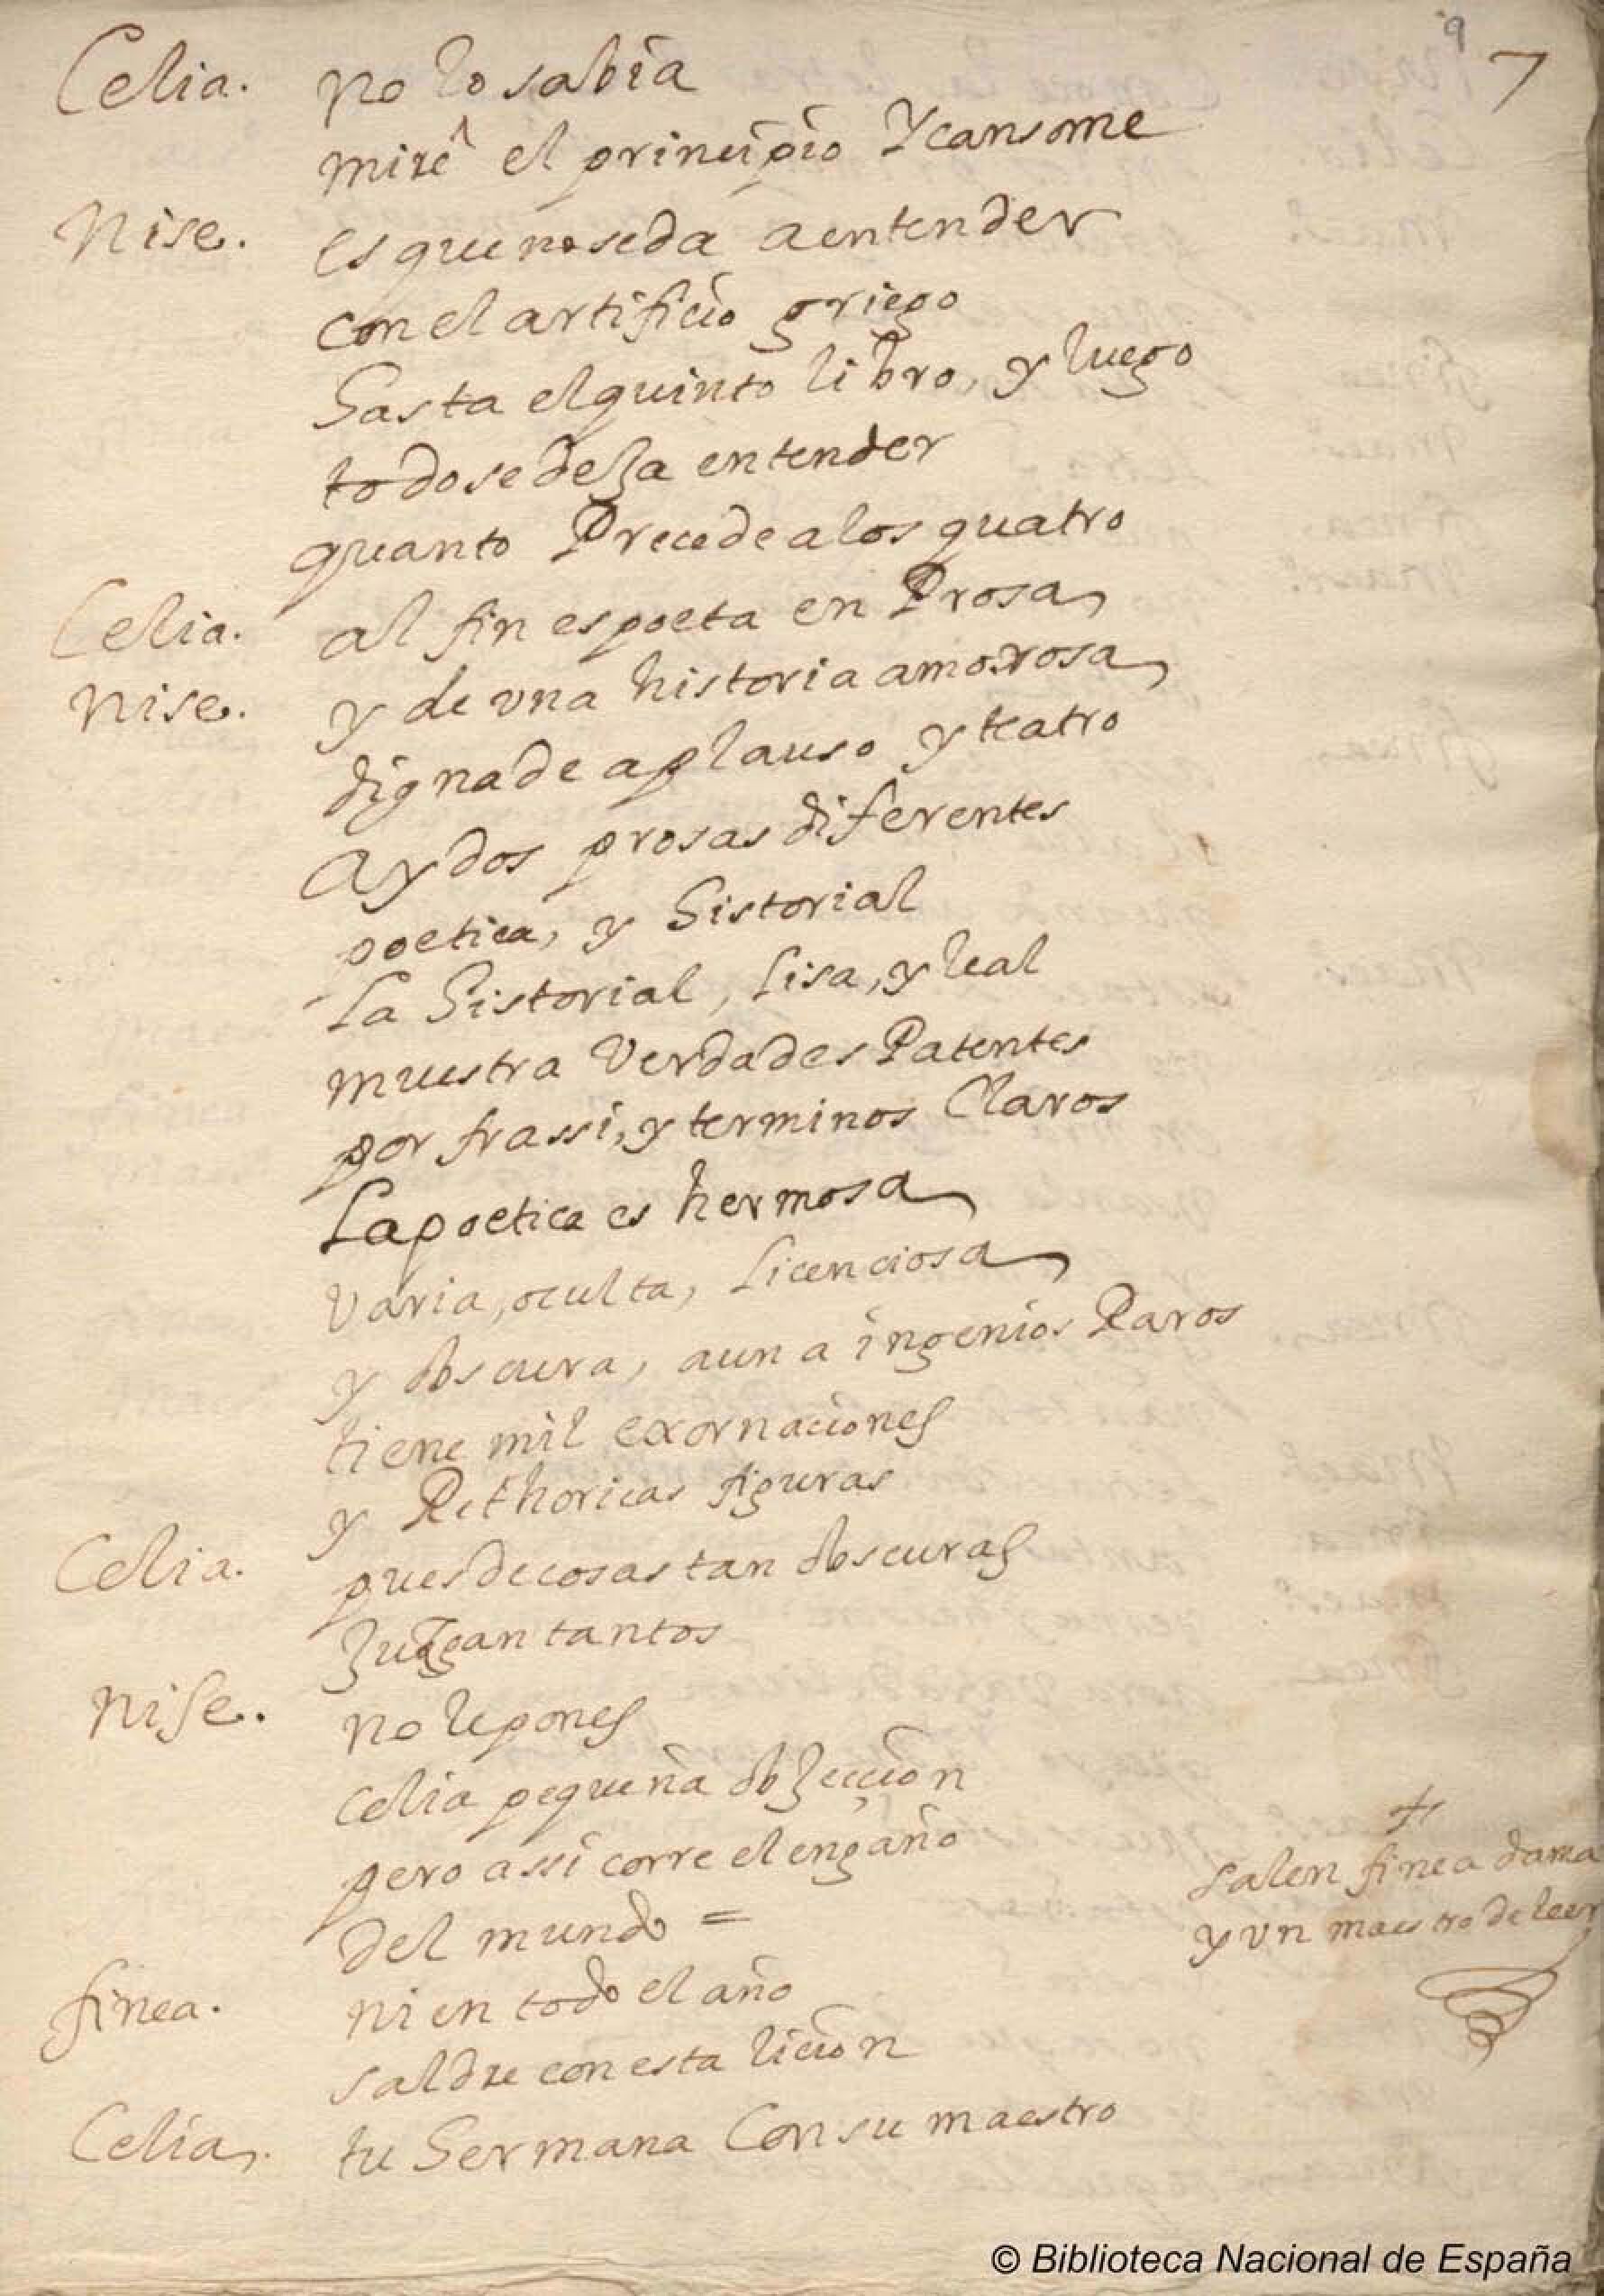 9
7
Celia. no lo sabia
mire el principio Y cansome
Nise. es que no se da a entender
con el artificio griego
hasta el quinto libro, y luego
todo se deja entender
quanto Precede a los quatro
Celia. al fin es poeta en Prosa
Nise. y de vna historia amorosa
digna de aplauso y teatro
ay dos prosas diferentes
poetica, y historial
La historial, Lisa, y leal
muestra Verdades Patentes
por frassi, y terminos Claros
La poetica es hermosa
varia, oculta, Licenciosa
y obscura, aun a ingenios Raros
tiene mil exornaciones
y Rethoricas figuras
Celia. pues de cosas tan obscuras
juzgan tantos
Nise. no le pones
Celia pequeña objeccion
pero assi corre el engaño
del mundo =
salen finea dama
y vn maestro de leer
finea. ni en todo el año
saldre con esta licion
Celia. tu hermana Con su maestro
© Biblioteca Nacional de España